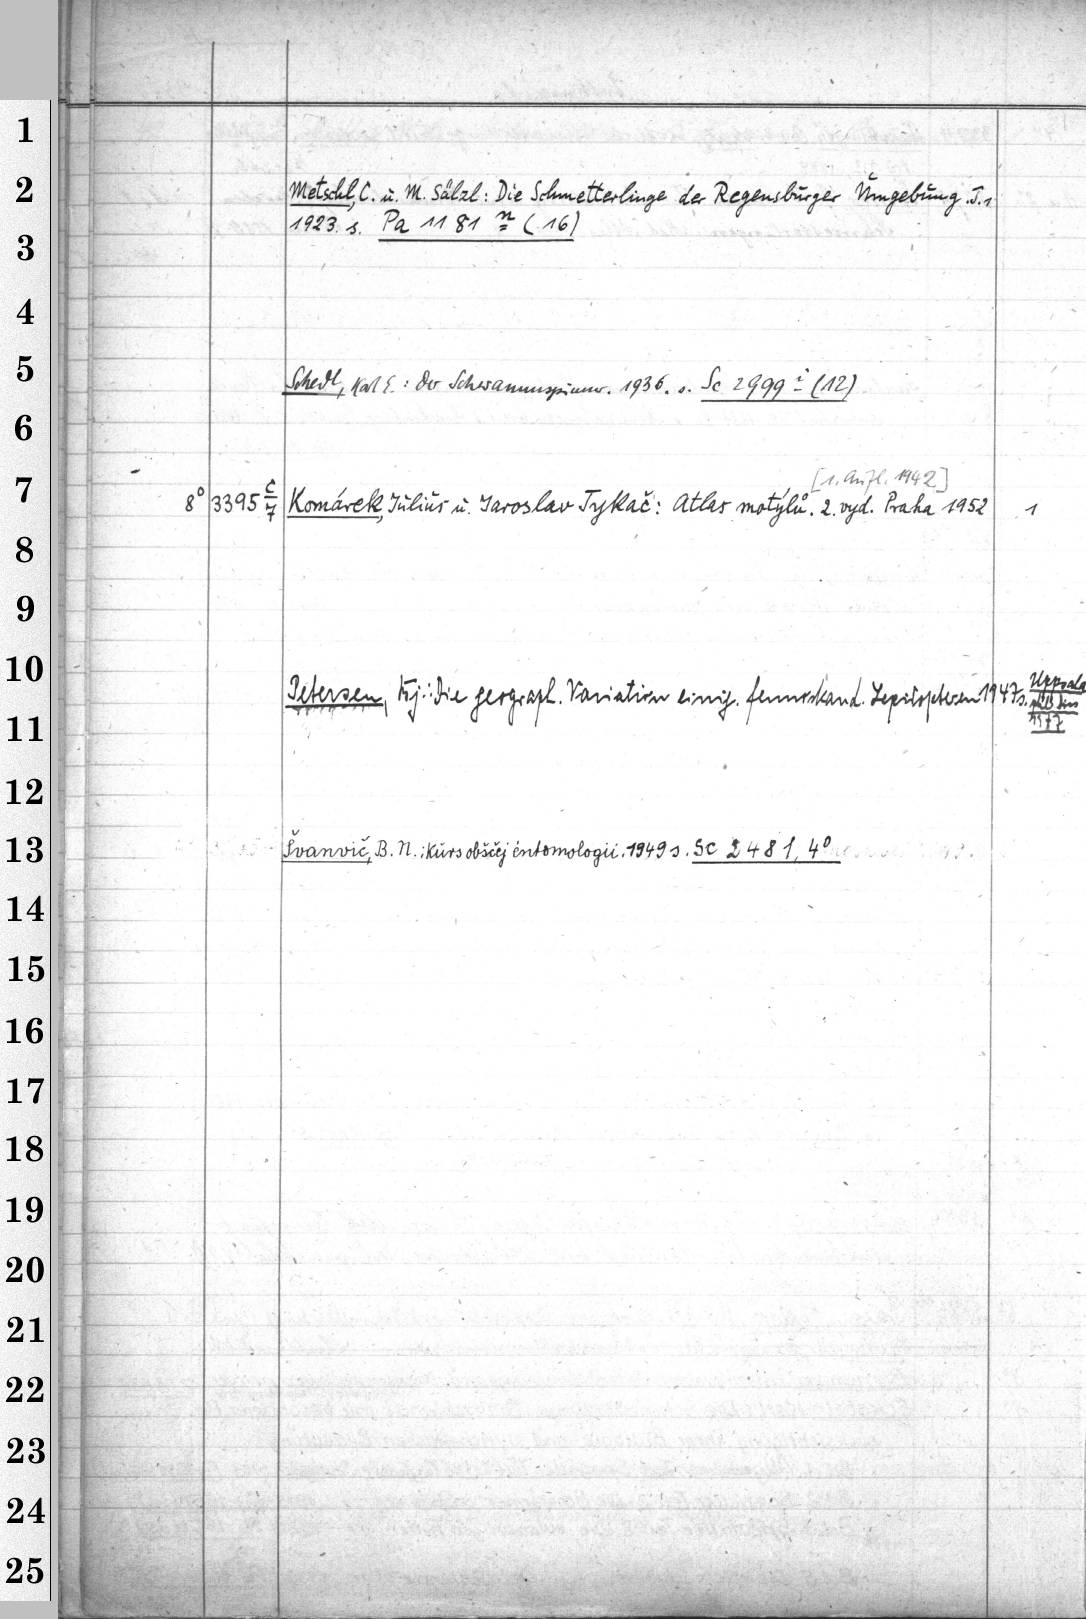 1
2
Metschl, C. u. M. Sälzl: Die Schmetterlinge der Regensburger Umgebung. T. 1
1923. s. Pa 1181 n (16)
3
4
5
Schedl, Karl E.: Der Schwammspinner. 1936. s. Sc 2999 i (12)
6
[1. Aufl. 1942]
7
8° 3395 c/7 Komárek, Julius u. Jaroslav Tykač: Atlas motýlů. 2. vyd. Praha 1952 1
8
9
10
Petersen, Kj.: Die geograph. Variation einig. fennoskand. Lepidopteren 1947 s. Uppsala
1977
11
12
13
Švanvič, B. N.: Kurs obščej ėntomologii. 1949 s. Sc 2481, 4°
14
15
16
17
18
19
20
21
22
23
24
25